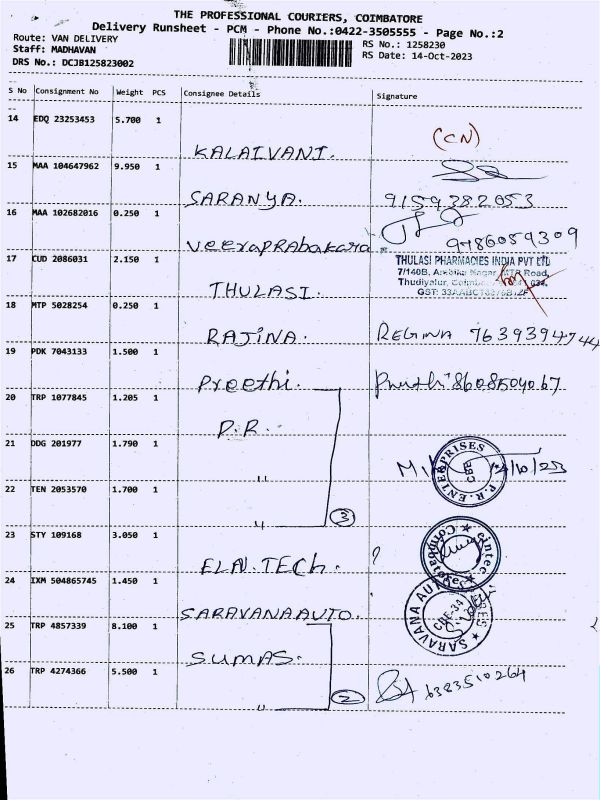 THE PROFESSIONAL COURIERS, COIMBATORE
Delivery Runsheet - PCM - Phone No.:0422-3505555 - Page No.:2
Route: VAN DELIVERY
RS No.: 1258230
Staff: MADHAVAN
RS Date: 14-Oct-2023
DRS No.: DCJB125823002
S No Consignment No Weight PCS Consignee Details Signature
14 EDQ 23253453 5.700 1
KALAIVANI. (CN)
15 MAA 104647962 9.950 1
SARANYA. 9159382053
16 MAA 102682016 0.250 1
VeeraPRAbakara 9786059309
17 CUD 2086031 2.150 1
THULASI PHARMACIES INDIA PVT LTD
7/140B, Ambika Nagar, MTR Road,
Thudiyalur,
THULASI.
18 MTP 5028254 0.250 1
RAJINA. REGINA 7639394744
19 PDK 7043133 1.500 1
Preethi. 8608504067
20 TRP 1077845 1.205 1
P.R.
21 DDG 201977 1.790 1
" P.R. ENTERPRISES CBE /10/23
22 TEN 2053570 1.700 1
" 3
23 STY 109168 3.050 1
ELN.TECh. ?
24 IXM 504865745 1.450 1
SARAVANAAUTO. SARAVANA AUTO CBE-34
25 TRP 4857339 8.100 1
SUMAS.
26 TRP 4274366 5.500 1
" 2 6383510264